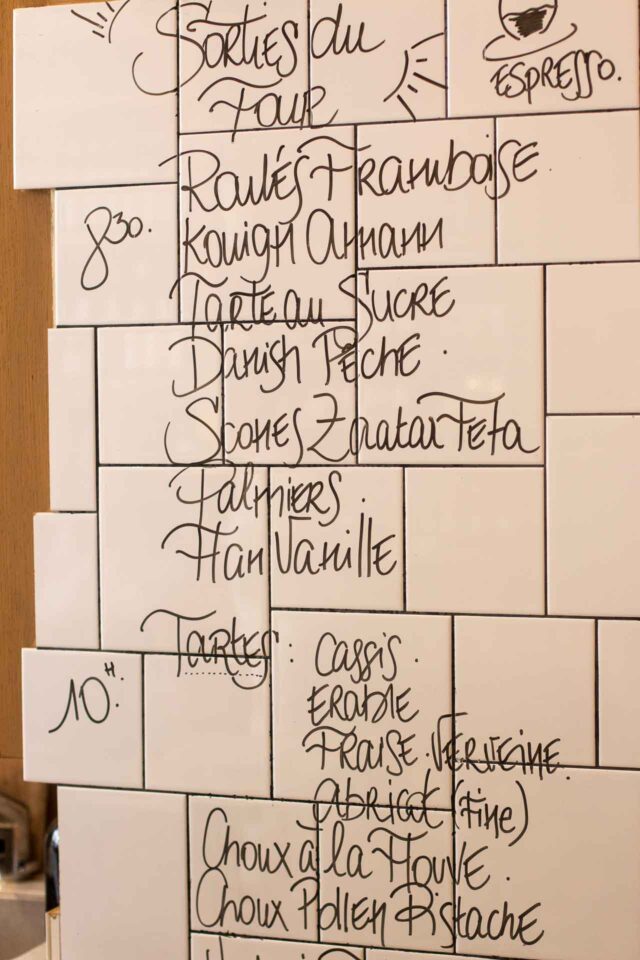 Sorties du
Four
ESPRESSO.
Roulés Framboise.
8 30.
Kouign Amann
Tarte au Sucre
Danish Pêche.
Scones Zaatar Feta
Palmiers.
Flan Vanille
10 H.
Tartes: Cassis.
Erable
Fraise. Verveine.
Abricot (Fine)
Choux à la Flouve.
Choux Pollen Pistache